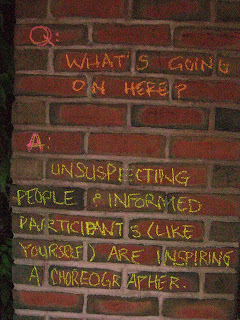 Q:
WHAT'S GOING
ON HERE?
A:
UNSUSPECTING
PEOPLE & INFORMED
PARTICIPANTS (LIKE
YOURSELF) ARE INSPIRING
A CHOREOGRAPHER.